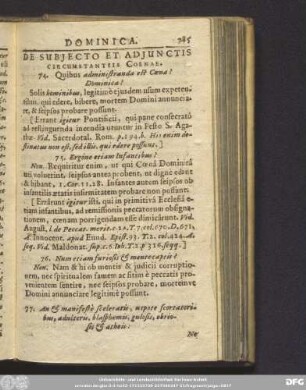 DOMINICA. 785
DE SUBJECTO ET ADJUNCTIS
CIRCUMSTANTIIS COENAE.
74. Quibus administranda est Cœna?
Dominica?
Solis hominibus, legitimè ejusdem usum expeten-
tibus, qui edere, bibere, mortem Domini annuncia-
re, & seipsos probare possunt.
[Errant igitur Pontificii, qui pane consecratô
ad restinguenda incendia utuntur in Festo S. Aga-
thæ Vid. Sacerdotal. Rom. Hic enim de-
stinatus non est, sed illis, qui edere possunt.]
75. Ergóne etiam Infantibus?
Non. Requiritur enim, ut qui Cœnâ Dominicâ
uti voluerint, seipsos antea probent, ut dignè edant
& bibant, 1. Cor. 11. 28. Infantes autem seipsos ob
infantilis ætatis infirmitatem probare non possunt.
[Errârunt igitur isti, qui in primitivâ Ecclesiâ e-
tiam infantibus, ad remissionis peccatorum obsigna-
tionem, cœnam porrigendam esse dimicârunt. Vid.
August. l. de Peccat. merit.
& Innocent. apud Eund. Epist. 93. T. 2.
Vid. Maldonat.
76. Num etiam furiosis & mentecaptis?
Non. Nam & hi ob mentis & judicii corruptio-
nem, nec spiritualem famem ac sitim è peccatis pro-
venientem sentire, nec seipsos probare, mortemve
Domini annunciare legitimè possunt.
77. An & manifestè sceleratis, utpote scortatori-
bus, adulteris, blasphemis, gulosis, ebrio-
sis & atheis?